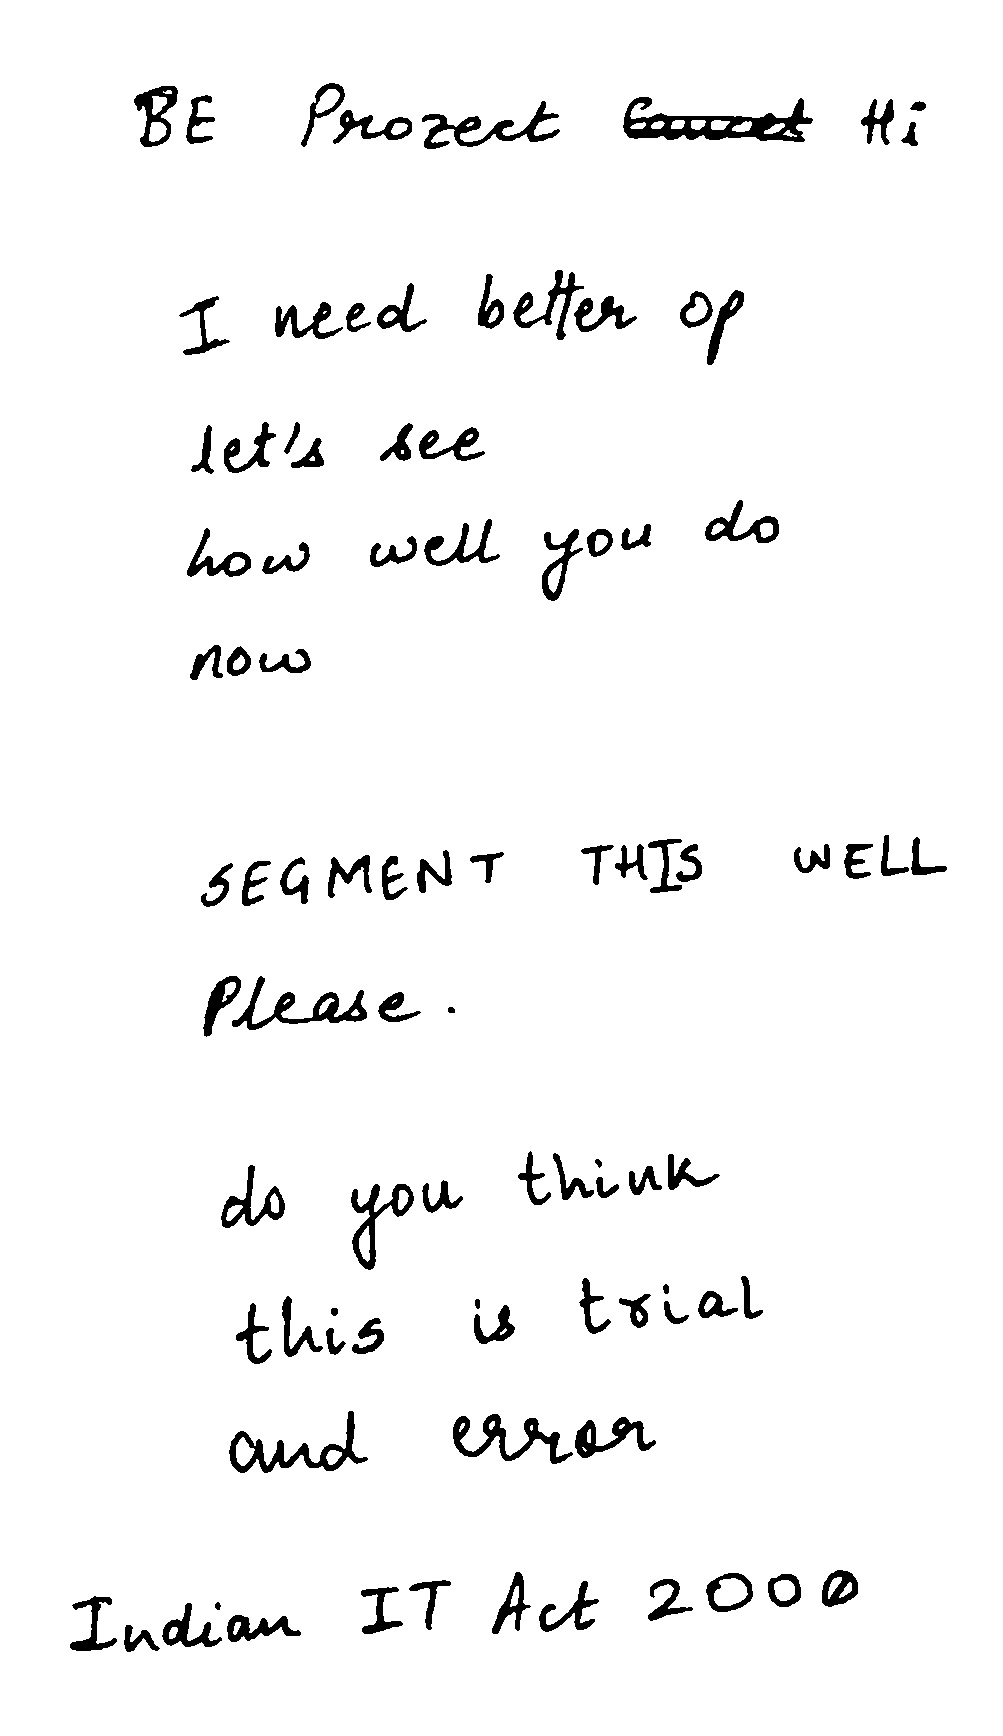 BE Prozect Hi
I need better op
let's see
how well you do
now
SEGMENT THIS WELL
Please.
do you think
this is trial
and error
Indian IT Act 2000